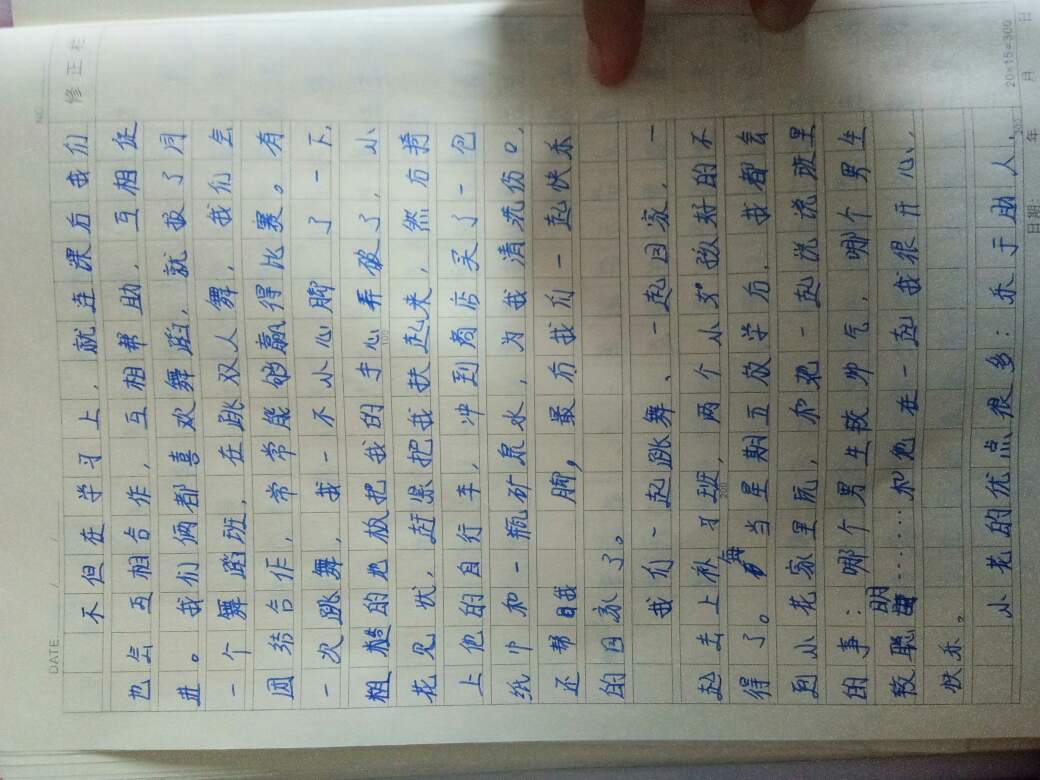 DATE / /
NO.
修正栏
不但在学习上，就连课后我们
也会互相合作，互相帮助，互相促
进。我们俩都喜欢舞蹈，就报了同
一个舞蹈班，在跳双人舞，我们会
团结合作，常常能够赢得比赛。有
一次跳舞，我一不小心脚 了一下，
粗糙的地板把我的手心弄破了，小
花见状，赶紧把我扶起来，然后骑
上他的自行车，冲到商店买了一包
纸巾和一瓶矿泉水，为我清洗伤口，
还帮我 脚，最后我们一起快乐
的回家了。
我们一起跳舞、一起回家，一
起去上补习班，两个小女孩好的不
得了。每当星期五放学后，我都会
到小花家里玩，和她一起说说班里
的事：哪个男生较帅气，哪个男生
较聪明……和她在一起我很开心、
快乐。
小花的优点很多：乐于助人，
100
200
300
20×15=300
日期： 年 月 日